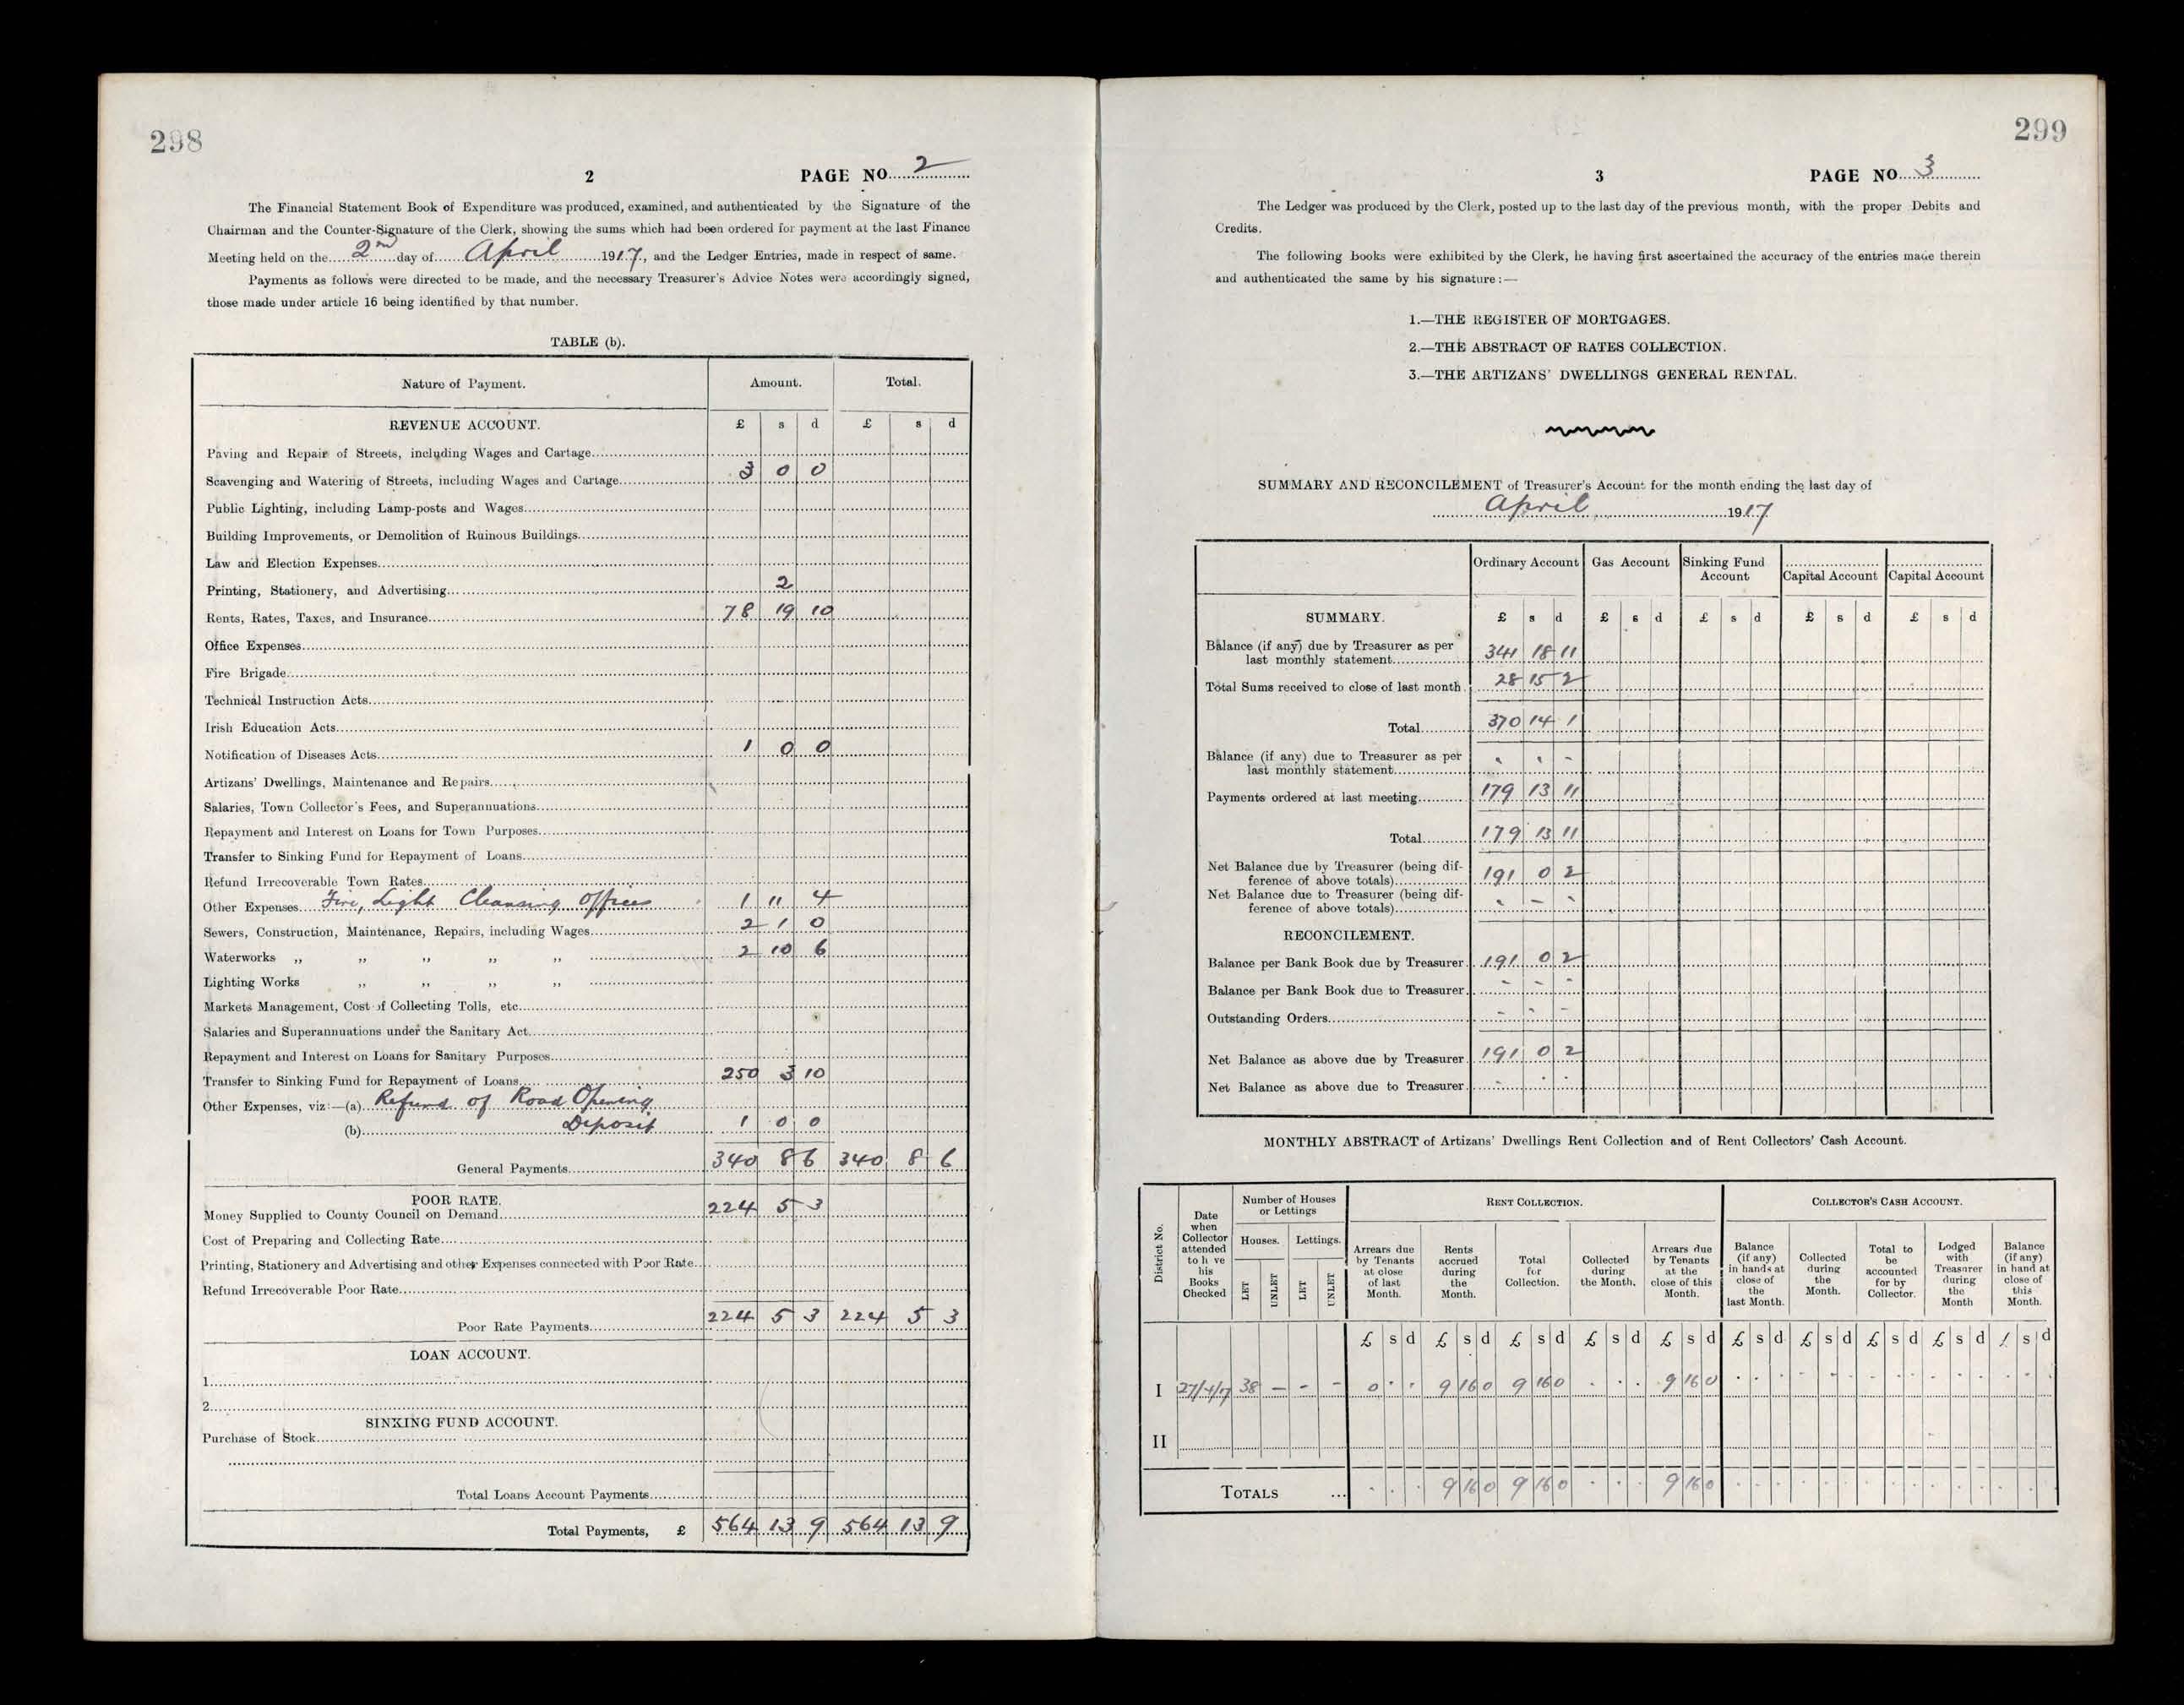 298
2 PAGE NO. 2
The Financial Statement Book of Expenditure was produced, examined, and authenticated by the Signature of the
Chairman and the Counter-Signature of the Clerk, showing the sums which had been ordered for payment at the last Finance
Meeting held on the 2nd day of April 1917, and the Ledger Entries, made in respect of same.
Payments as follows were directed to be made, and the necessary Treasurer's Advice Notes were accordingly signed,
those made under article 16 being identified by that number.
TABLE (b).
Nature of Payment. Amount. Total.
REVENUE ACCOUNT. £ s d £ s d
Paving and Repair of Streets, including Wages and Cartage
Scavenging and Watering of Streets, including Wages and Cartage 3 0 0
Public Lighting, including Lamp-posts and Wages
Building Improvements, or Demolition of Ruinous Buildings
Law and Election Expenses
Printing, Stationery, and Advertising 2
Rents, Rates, Taxes, and Insurance 78 19 10
Office Expenses
Fire Brigade
Technical Instruction Acts
Irish Education Acts
Notification of Diseases Acts 1 0 0
Artizans' Dwellings, Maintenance and Repairs
Salaries, Town Collector's Fees, and Superannuations
Repayment and Interest on Loans for Town Purposes
Transfer to Sinking Fund for Repayment of Loans
Refund Irrecoverable Town Rates
Other Expenses Fire, Light Cleansing Offices 1 11 4
Sewers, Construction, Maintenance, Repairs, including Wages 2 1 0
Waterworks ,, ,, ,, ,, ,, 2 10 6
Lighting Works ,, ,, ,, ,,
Markets Management, Cost of Collecting Tolls, etc.
Salaries and Superannuations under the Sanitary Act
Repayment and Interest on Loans for Sanitary Purposes
Transfer to Sinking Fund for Repayment of Loans 250 3 10
Other Expenses, viz:—(a) Refund of Road Opening
(b) Deposit 1 0 0
General Payments 340 8 6 340 8 6
POOR RATE.
Money Supplied to County Council on Demand 224 5 3
Cost of Preparing and Collecting Rate
Printing, Stationery and Advertising and other Expenses connected with Poor Rate
Refund Irrecoverable Poor Rate
Poor Rate Payments 224 5 3 224 5 3
LOAN ACCOUNT.
1
2
SINKING FUND ACCOUNT.
Purchase of Stock
Total Loans Account Payments
Total Payments, £ 564 13 9 564 13 9
299
3 PAGE NO. 3
The Ledger was produced by the Clerk, posted up to the last day of the previous month, with the proper Debits and
Credits.
The following Books were exhibited by the Clerk, he having first ascertained the accuracy of the entries made therein
and authenticated the same by his signature:—
1.—THE REGISTER OF MORTGAGES.
2.—THE ABSTRACT OF RATES COLLECTION.
3.—THE ARTIZANS' DWELLINGS GENERAL RENTAL.
SUMMARY AND RECONCILEMENT of Treasurer's Account for the month ending the last day of
April 1917
Ordinary Account Gas Account Sinking Fund Account Capital Account Capital Account
SUMMARY. £ s d £ s d £ s d £ s d £ s d
Balance (if any) due by Treasurer as per
last monthly statement 341 18 11
Total Sums received to close of last month 28 15 2
Total 370 14 1
Balance (if any) due to Treasurer as per
last monthly statement - - -
Payments ordered at last meeting 179 13 11
Total 179 13 11
Net Balance due by Treasurer (being dif-
ference of above totals) 191 0 2
Net Balance due to Treasurer (being dif-
ference of above totals) - - -
RECONCILEMENT.
Balance per Bank Book due by Treasurer 191 0 2
Balance per Bank Book due to Treasurer - - -
Outstanding Orders - - -
Net Balance as above due by Treasurer 191 0 2
Net Balance as above due to Treasurer - - -
MONTHLY ABSTRACT of Artizans' Dwellings Rent Collection and of Rent Collectors' Cash Account.
District No.
Date when Collector attended to h ve his Books Checked
Number of Houses or Lettings
Houses. Lettings.
LET UNLET LET UNLET
RENT COLLECTION.
Arrears due by Tenants at close of last Month.
Rents accrued during the Month.
Total for Collection.
Collected during the Month.
Arrears due by Tenants at the close of this Month.
COLLECTOR'S CASH ACCOUNT.
Balance (if any) in hands at close of the last Month.
Collected during the Month.
Total to be accounted for by Collector.
Lodged with Treasurer during the Month
Balance (if any) in hand at close of this Month.
£ s d £ s d £ s d £ s d £ s d £ s d £ s d £ s d £ s d £ s d
I 27/4/17 38 - - - 0 . . 9 16 0 9 16 0 . . . 9 16 0
II
TOTALS ... . . . 9 16 0 9 16 0 . . . 9 16 0